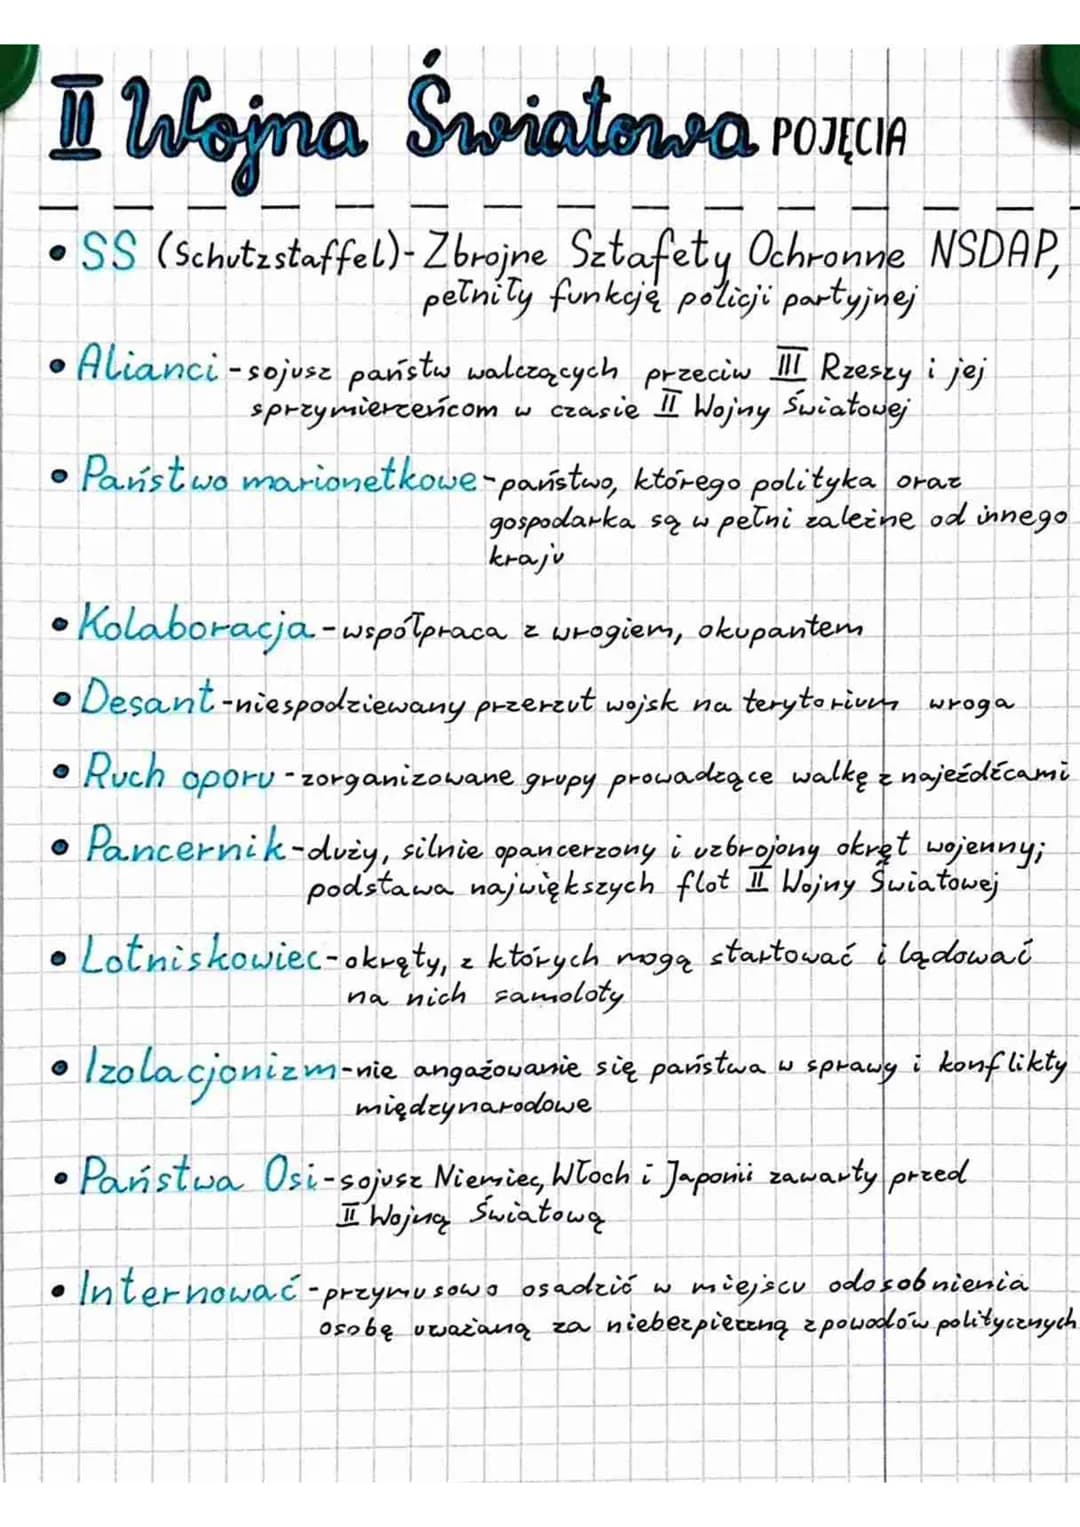 II Wojna Światowa POJĘCIA
• SS (Schutzstaffel)- Zbrojne Sztafety Ochronne NSDAP,
pełniły funkcję policji partyjnej
• Alianci - sojusz państw walczących przeciw III Rzeszy i jej
sprzymierzeńcom w czasie II Wojny Światowej
• Państwo marionetkowe - państwo, którego polityka oraz
gospodarka są w pełni zależne od innego
kraju
• Kolaboracja - współpraca z wrogiem, okupantem
• Desant - niespodziewany przerzut wojsk na terytorium wroga
• Ruch oporu - zorganizowane grupy prowadzące walkę z najeźdźcami
• Pancernik - duży, silnie opancerzony i uzbrojony okręt wojenny;
podstawa największych flot II Wojny Światowej
• Lotniskowiec - okręty, z których mogą startować i lądować
na nich samoloty
• Izolacjonizm - nie angażowanie się państwa w sprawy i konflikty
międzynarodowe
• Państwa Osi - sojusz Niemiec, Włoch i Japonii zawarty przed
II Wojną Światową
• Internować - przymusowo osadzić w miejscu odosobnienia
osobę uważaną za niebezpieczną z powodów politycznych